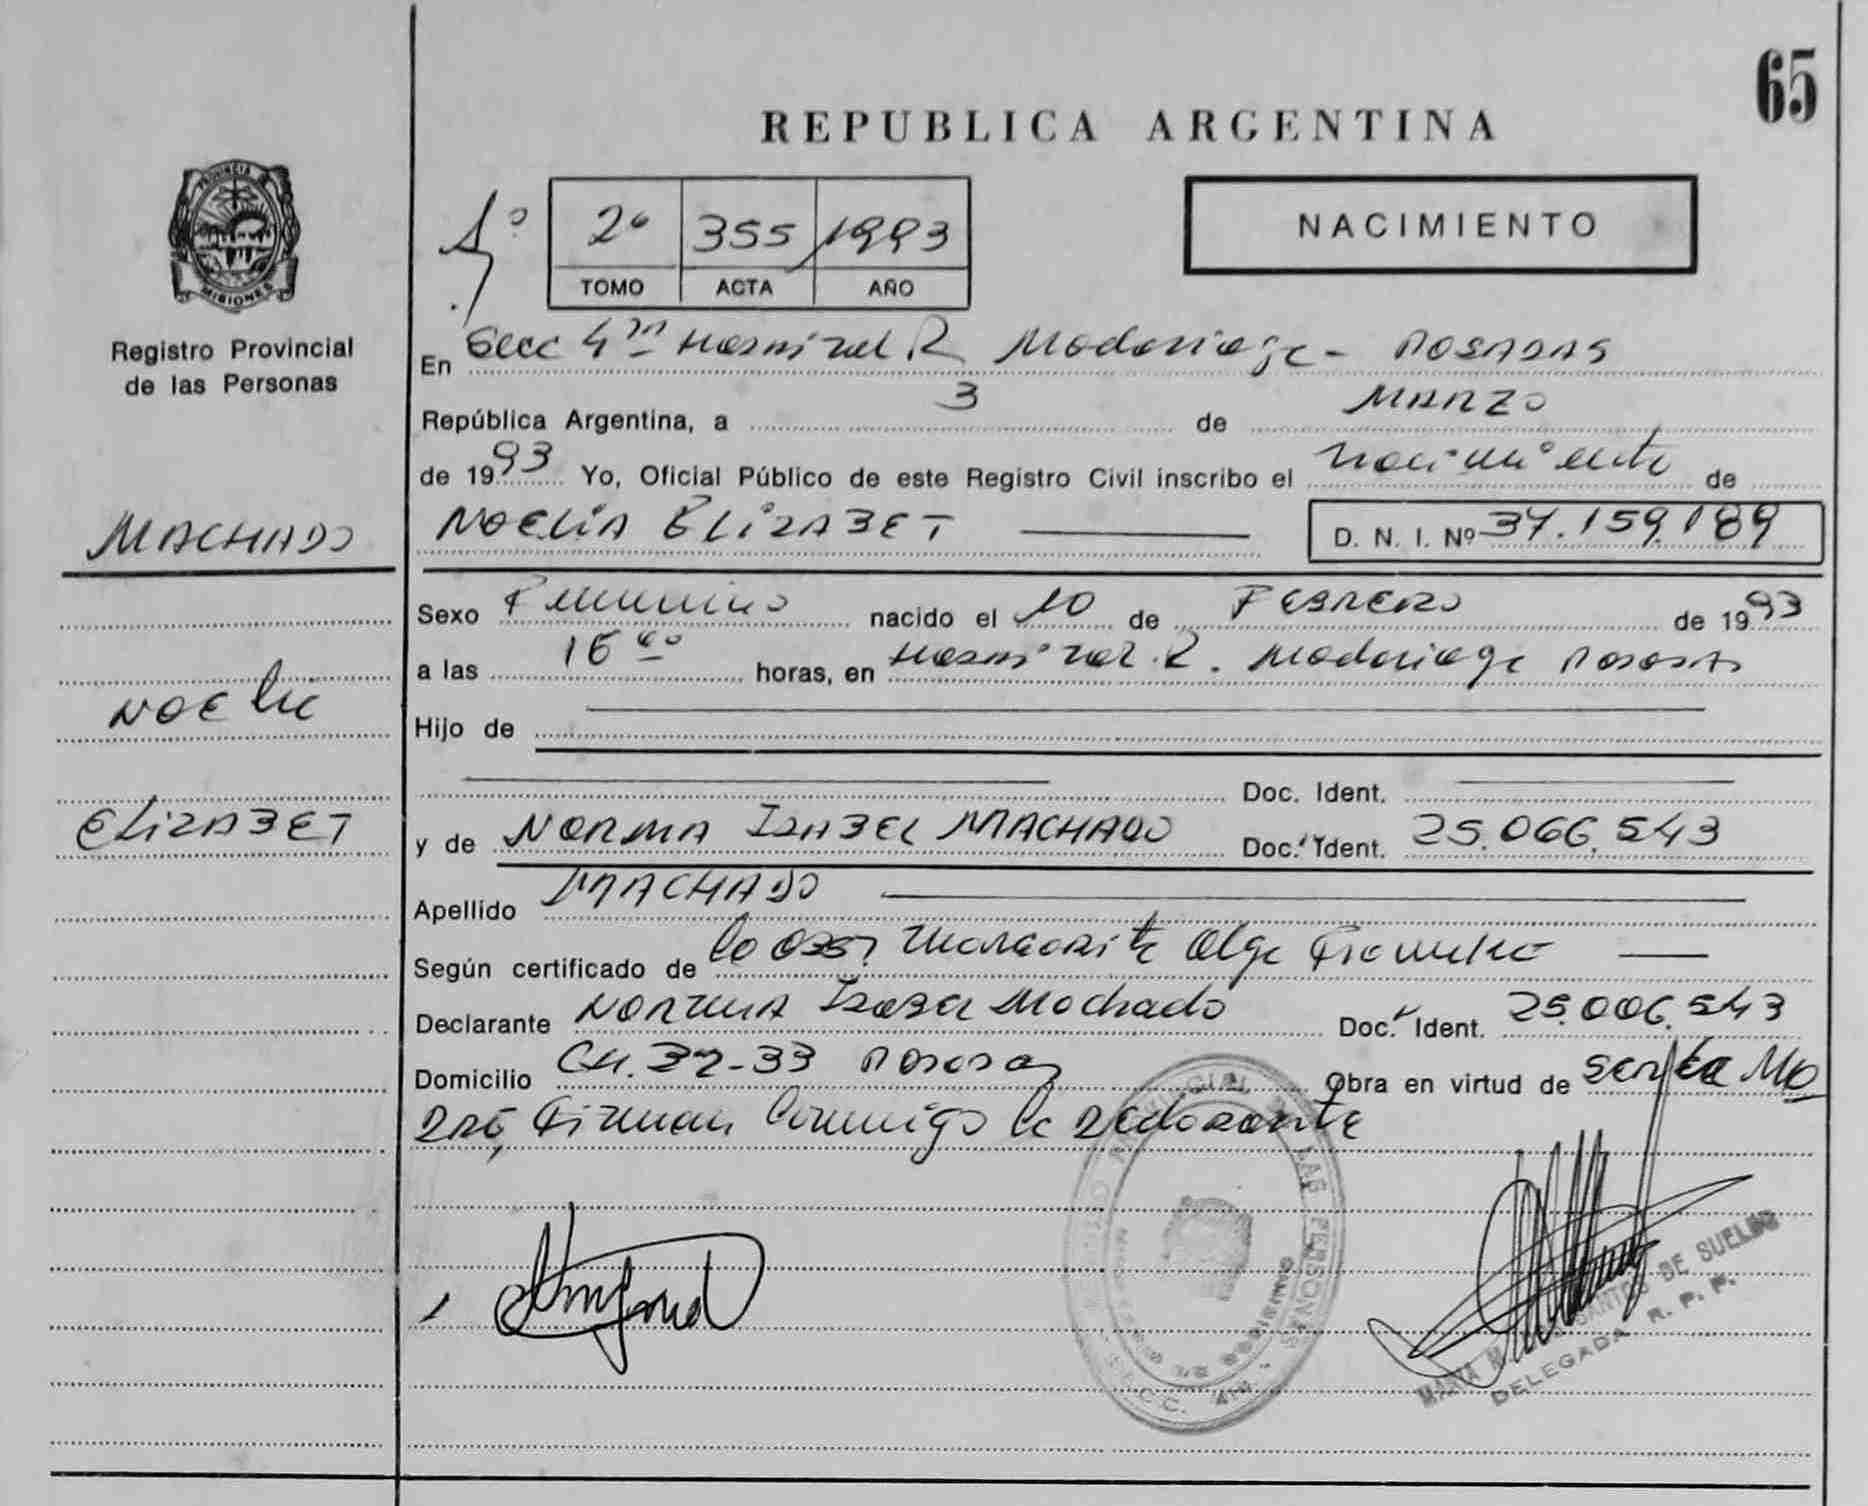 65
REPUBLICA ARGENTINA
PROVINCIA DE
MISIONES
Registro Provincial
de las Personas
2º 355 1993
TOMO ACTA AÑO
NACIMIENTO
En Secc 4ta Hospital R. Madariaga - POSADAS
República Argentina, a 3 de MARZO
de 1993 Yo, Oficial Público de este Registro Civil inscribo el nacimiento de
MACHADO
NOELIA ELIZABET D. N. I. Nº 37.159.189
Sexo Femenino nacido el 10 de FEBRERO de 1993
a las 16 00 horas, en Hospital R. Madariaga Posadas
NOELIA
Hijo de
Doc. Ident.
ELIZABET
y de NORMA ISABEL MACHADO Doc. Ident. 25.066.543
Apellido MACHADO
Según certificado de la Obst Margarita Olga
Declarante NORMA Isabel Machado Doc. Ident. 25.006.543
Domicilio CH. 32-33 Posadas Obra en virtud de ser la Ma
dre, Firman conmigo la declarante
PROVINCIAL DE LAS PERSONAS
MISIONES
SECC. 4ta
MARIA SANTOS DE SUELDO
DELEGADA R. P. P.